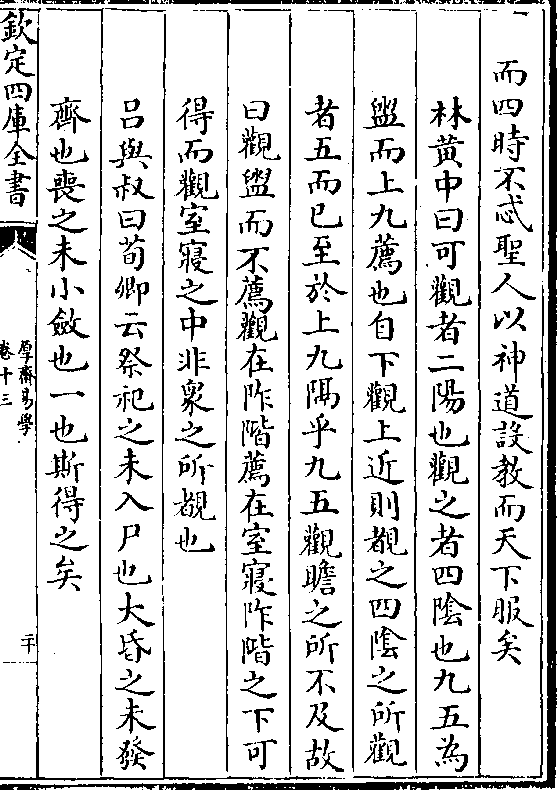 而四時不忒聖人以神道設教而天下服矣
林黄中曰可觀者二陽也觀之者四陰也九五為
盥而上九薦也自下觀上近則覩之四陰之所觀
者五而已至於上九隅乎九五觀瞻之所不及故
曰觀盥而不薦觀在阼階薦在室寢阼階之下可
得而觀室寢之中非衆之所覩也
吕與叔曰荀卿云祭祀之未入尸也大昏之未發
齊也喪之未小斂也一也斯得之矣
欽定四庫全書
厚齋易學
卷十三
二十